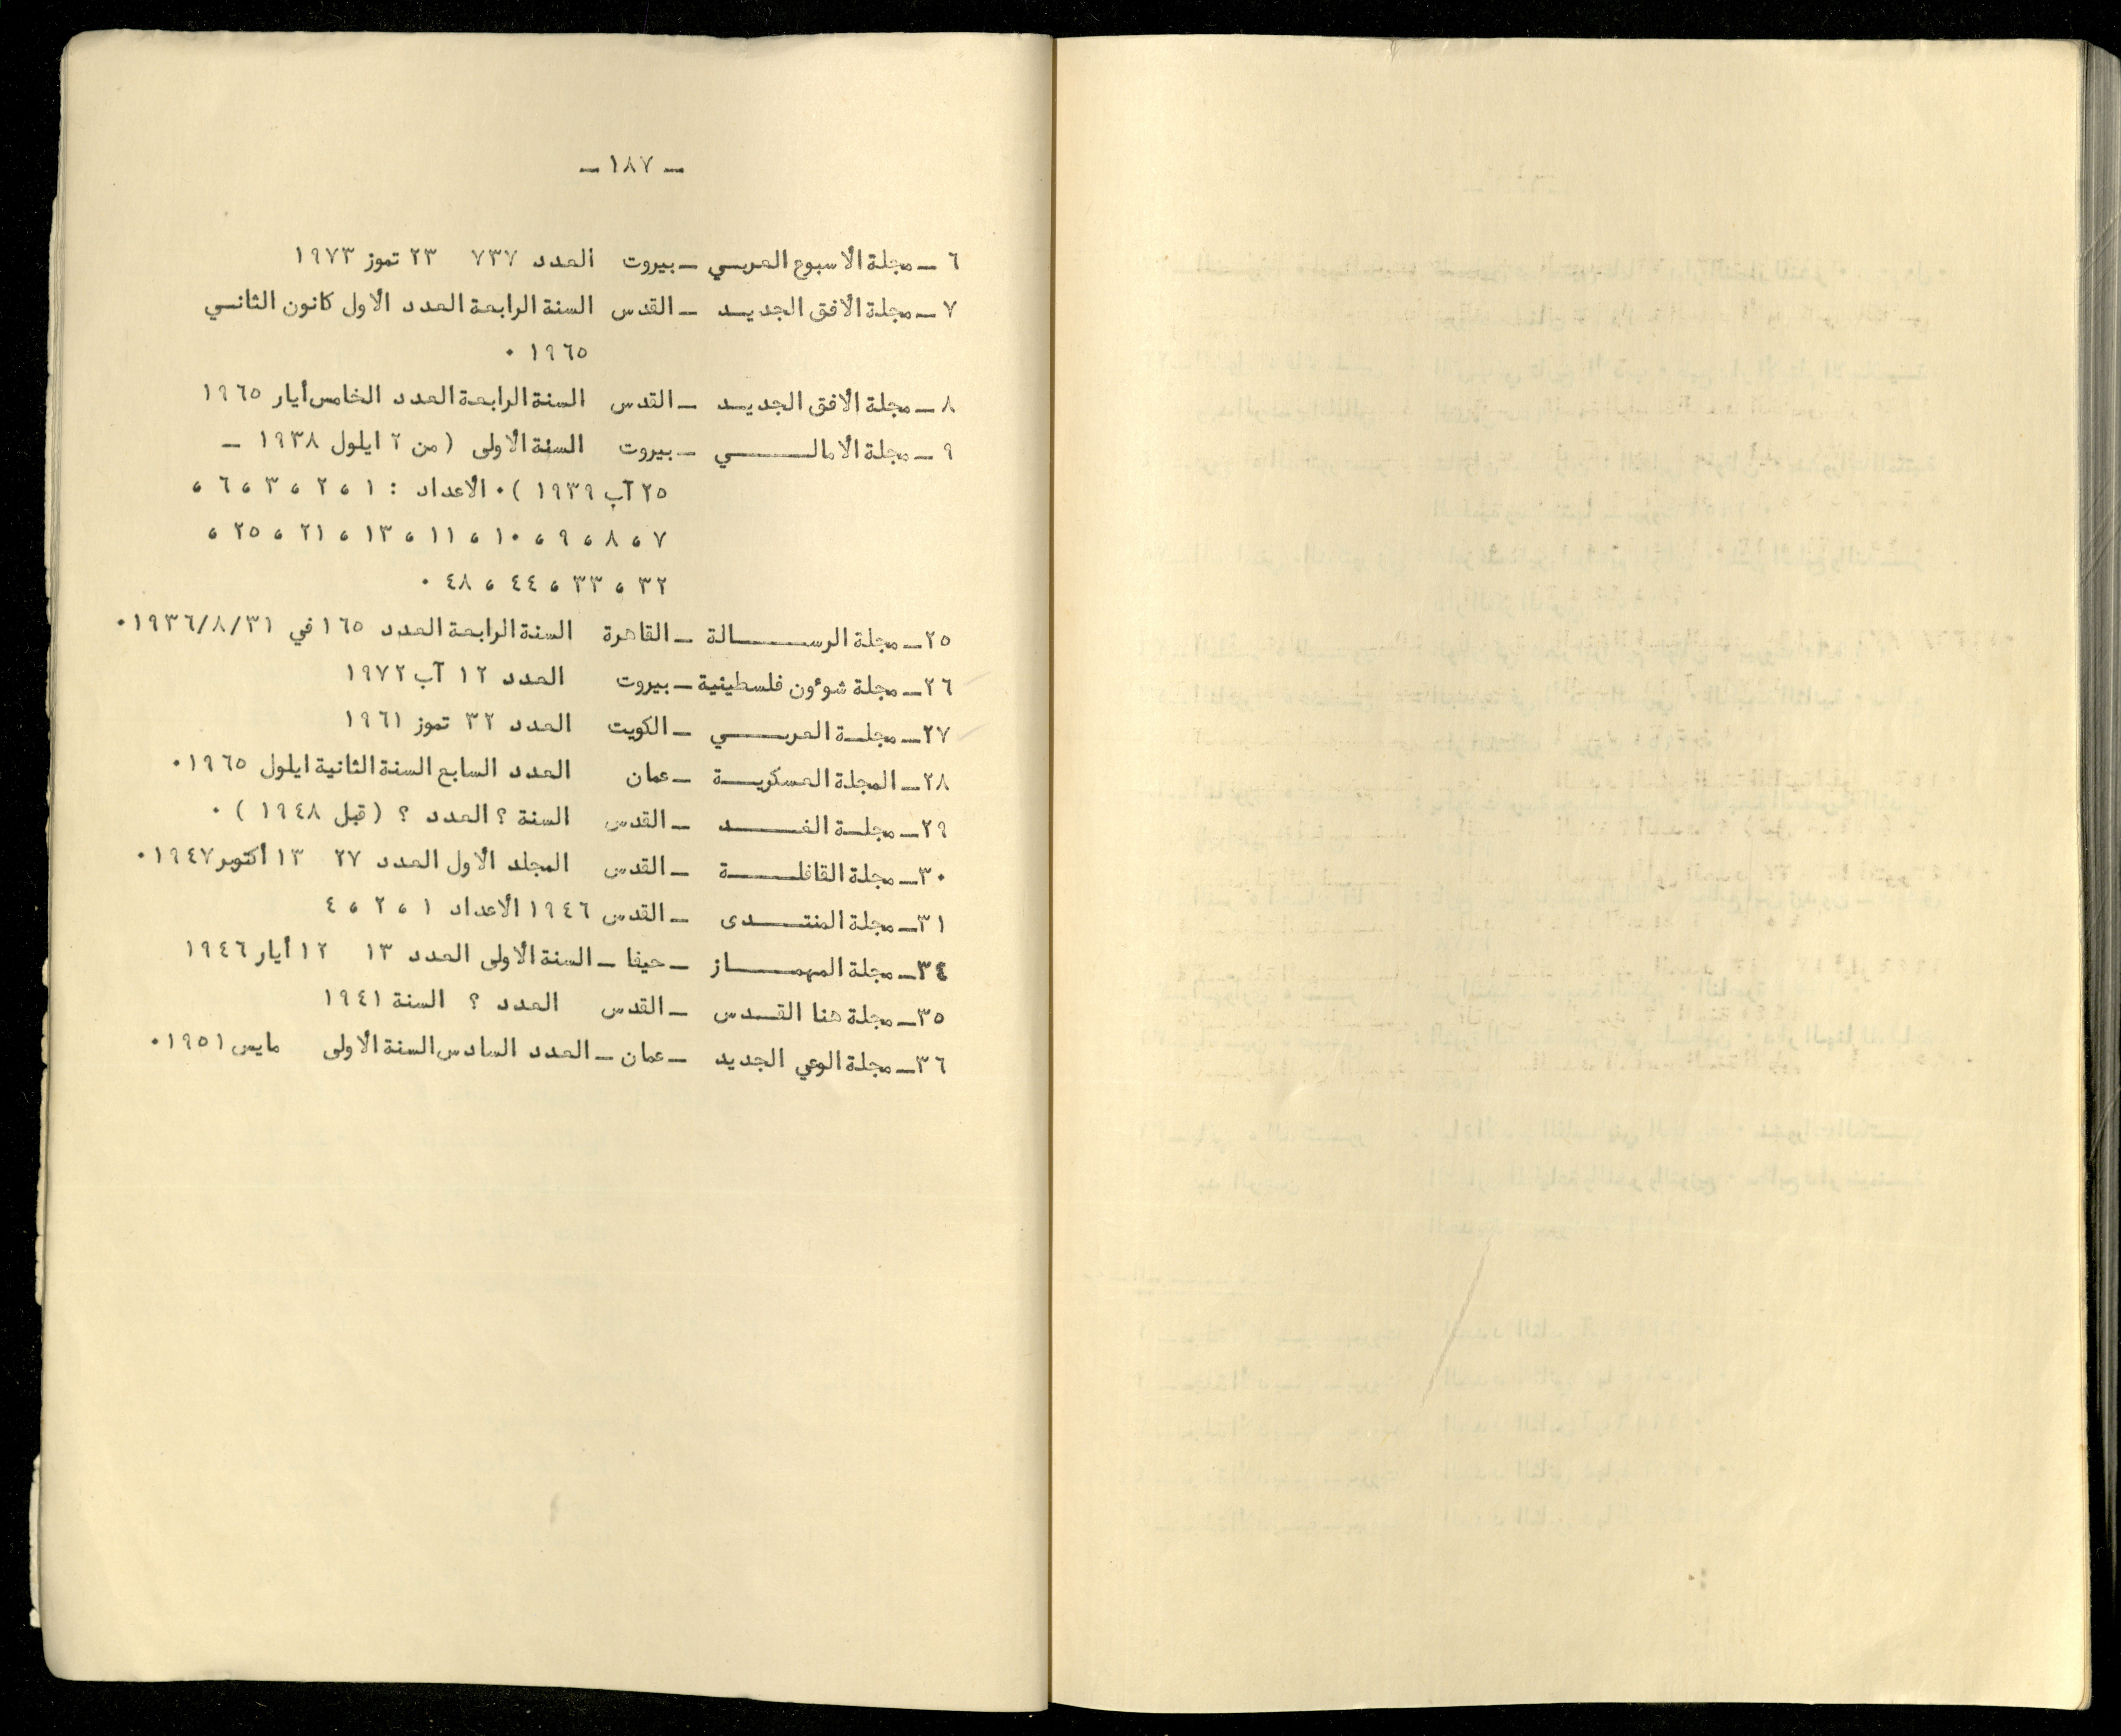 – ١٨٧ –
٦ – مجلة الأسبوع العربي – بيروت العدد ٧٣٧ ٢٣ تموز ١٩٧٣
٧ – مجلة الأفق الجديد – القدس السنة الرابعة العدد الأول كانون الثاني
١٩٦٥ ٠
٨ – مجلة الأفق الجديد – القدس السنة الرابعة العدد الخامس أيار ١٩٦٥
٩ – مجلة الأمالي – بيروت السنة الأولى ( من ٢ ايلول ١٩٣٨ –
٢٥ آب ١٩٣٩ ) ٠ الأعداد : ١ ، ٢ ، ٣ ، ٦ ،
٧ ، ٨ ، ٩ ، ١٠ ، ١١ ، ١٣ ، ٢١ ، ٢٥ ،
٣٢ ، ٣٣ ، ٤٤ ، ٤٨ ٠
٢٥ – مجلة الرسالة – القاهرة السنة الرابعة العدد ١٦٥ في ١٩٣٦/٨/٣١ ٠
٢٦ – مجلة شوءون فلسطينية – بيروت العدد ١٢ آب ١٩٧٢
٢٧ – مجلة العربي – الكويت العدد ٣٢ تموز ١٩٦١
٢٨ – المجلة العسكرية – عمان العدد السابع السنة الثانية ايلول ١٩٦٥ ٠
٢٩ – مجلة الغد – القدس السنة ؟ العدد ؟ ( قبل ١٩٤٨ ) ٠
٣٠ – مجلة القافلة – القدس المجلد الأول العدد ٢٧ ١٣ أكتوبر ١٩٤٧ ٠
٣١ – مجلة المنتدى – القدس ١٩٤٦ الأعداد ١ ، ٢ ، ٤
٣٤ – مجلة المهماز – حيفا – السنة الأولى العدد ١٣ ١٢ أيار ١٩٤٦
٣٥ – مجلة هنا القدس – القدس العدد ؟ السنة ١٩٤١
٣٦ – مجلة الوعي الجديد – عمان – العدد السادس السنة الأولى مايس ١٩٥١ ٠